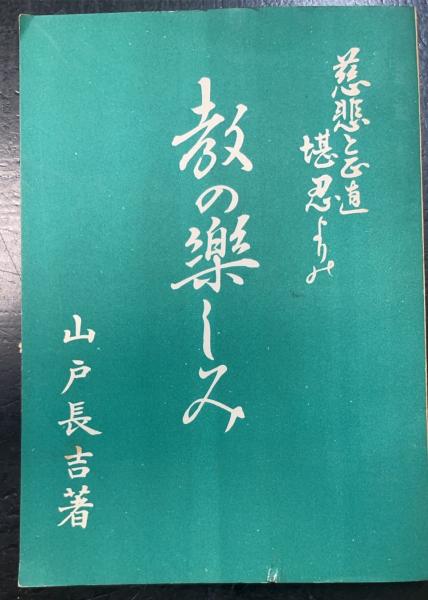 慈悲と正道
堪忍よりの
教の樂しみ
山戸長吉著